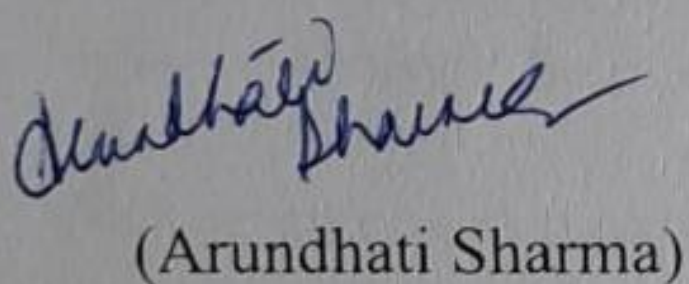 Arundhati
Sharma
(Arundhati Sharma)